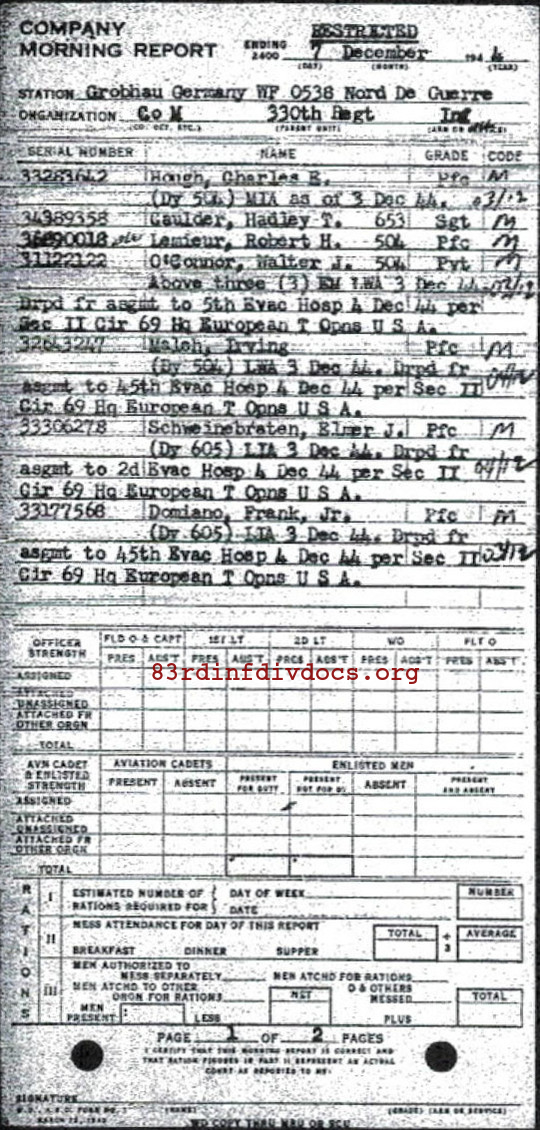 COMPANY
MORNING REPORT
RESTRICTED
ENDING 2400 7 December 1944
(DAY) (MONTH) (YEAR)
STATION Grobhau Germany WF 0538 Nord De Guerre
ORGANIZATION Co M 330th Regt Inf
(CO. DET. ETC.) (PARENT UNIT) (ARM OR SERVICE)
SERIAL NUMBER NAME GRADE CODE
33283642 Hough, Charles E. Pfc M
(Dy 504) MIA as of 3 Dec 44. 03/12
34389358 Gaulder, Hadley T. 653 Sgt M
36890018 Lemieur, Robert H. 504 Pfc M
31122122 O'Connor, Walter J. 504 Pvt M
Above three (3) EM LWA 3 Dec 44.
Drpd fr asgmt to 5th Evac Hosp 4 Dec 44 per
Sec II Cir 69 Hq European T Opns U S A.
32643247 Walsh, Irving Pfc M
(Dy 504) LWA 3 Dec 44. Drpd fr
asgmt to 45th Evac Hosp 4 Dec 44 per Sec II
Cir 69 Hq European T Opns U S A.
33306278 Schweinebraten, Elmer J. Pfc M
(Dy 605) LIA 3 Dec 44. Drpd fr
asgmt to 2d Evac Hosp 4 Dec 44 per Sec II
Cir 69 Hq European T Opns U S A.
33177568 Domiano, Frank, Jr. Pfc M
(Dy 605) LIA 3 Dec 44. Drpd fr
asgmt to 45th Evac Hosp 4 Dec 44 per Sec II
Cir 69 Hq European T Opns U S A.
OFFICER STRENGTH FLD O & CAPT 1ST LT 2D LT WO FLT O
PRES ABS'T PRES ABS'T PRES ABS'T PRES ABS'T PRES ABS'T
83rdinfdivdocs.org
ASSIGNED
ATTACHED UNASSIGNED
ATTACHED FR OTHER ORGN
TOTAL
AVN CADET & ENLISTED STRENGTH AVIATION CADETS ENLISTED MEN
PRESENT ABSENT PRESENT FOR DUTY PRESENT NOT FOR DY ABSENT PRESENT AND ABSENT
ASSIGNED
ATTACHED UNASSIGNED
ATTACHED FR OTHER ORGN
TOTAL
RATIONS
I ESTIMATED NUMBER OF RATIONS REQUIRED FOR DAY OF WEEK DATE NUMBER
II MESS ATTENDANCE FOR DAY OF THIS REPORT TOTAL ÷ 3 AVERAGE
BREAKFAST DINNER SUPPER
III MEN AUTHORIZED TO MESS SEPARATELY MEN ATCHD FOR RATIONS
MEN ATCHD TO OTHER ORGN FOR RATIONS NET O & OTHERS MESSED TOTAL
MEN PRESENT LESS PLUS
PAGE 1 OF 2 PAGES
I CERTIFY THAT THIS MORNING REPORT IS CORRECT AND
THAT RATION FIGURES IN PART II REPRESENT AN ACTUAL
COUNT AS REPORTED TO ME:
SIGNATURE
(NAME) (GRADE) (ARM OR SERVICE)
WD COPY THRU MRU OR SCU